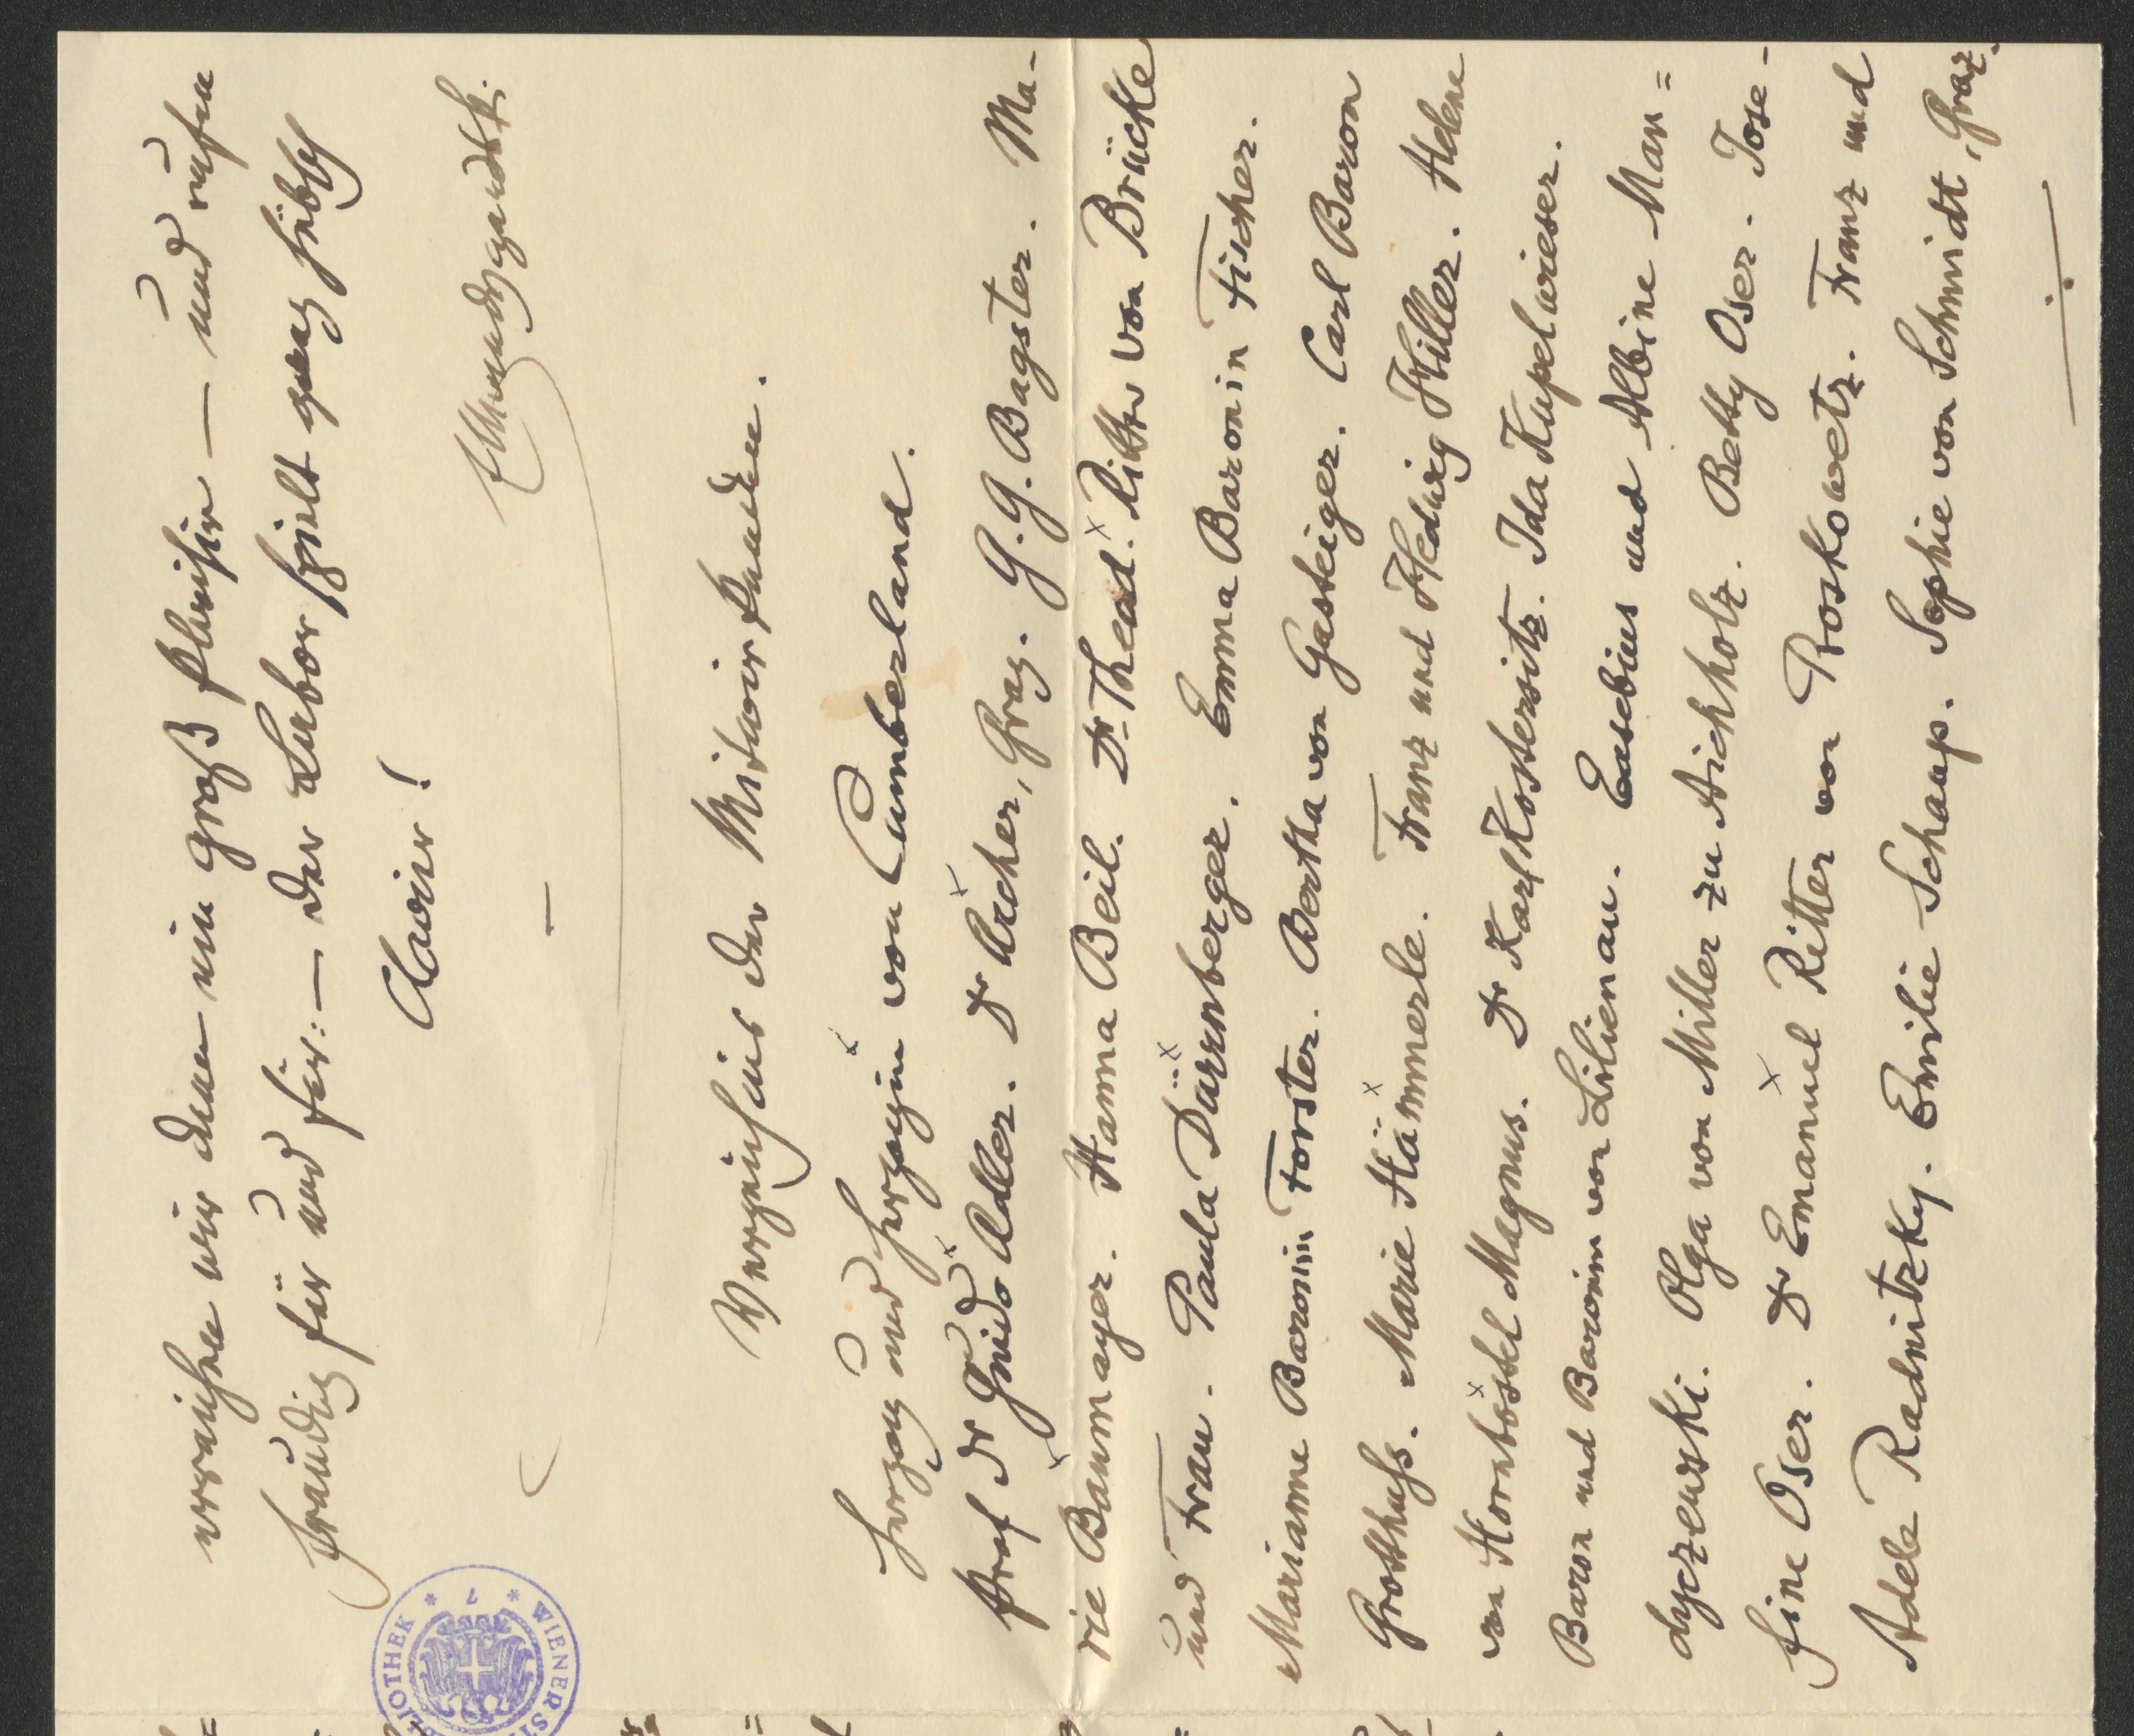 erreichen wir denn ein groß Plaisir — und rufen
freudig für und für: — der Labor spielt ganz hübsch
Clavier!
Verzeichnis der Mitwirkenden.
Herzog und Herzogin von Cumberland.
Prof Dr Guido Adler. Dr Archer, Graz. G. G. Bagster. Ma-
rie Baumayer. Hanna Beil. Dr. Theod. Ritter von Brücke
und Frau. Paula Dürrnberger. Emma Baronin Fischer.
Marianne Baronin Forster. Bertha von Gasteiger. Carl Baron
Grotthuss. Marie Hämmerle. Franz und Hedwig Hiller. Helene
von Hornbostel Magnus. Dr Karl Kostersitz. Ida Kupelwieser.
Baron und Baronin von Lilienau. Eusebius und Albine Man=
dyczewski. Olga von Miller zu Aichholz. Betty Oser. Jose-
fine Oser. Dr Emanuel Ritter von Proskowetz. Franz und
Adele Radnitzky. Emilie Schaup. Sophie von Schmidt, Graz.
BIBLIOTHEK * WIENER ST